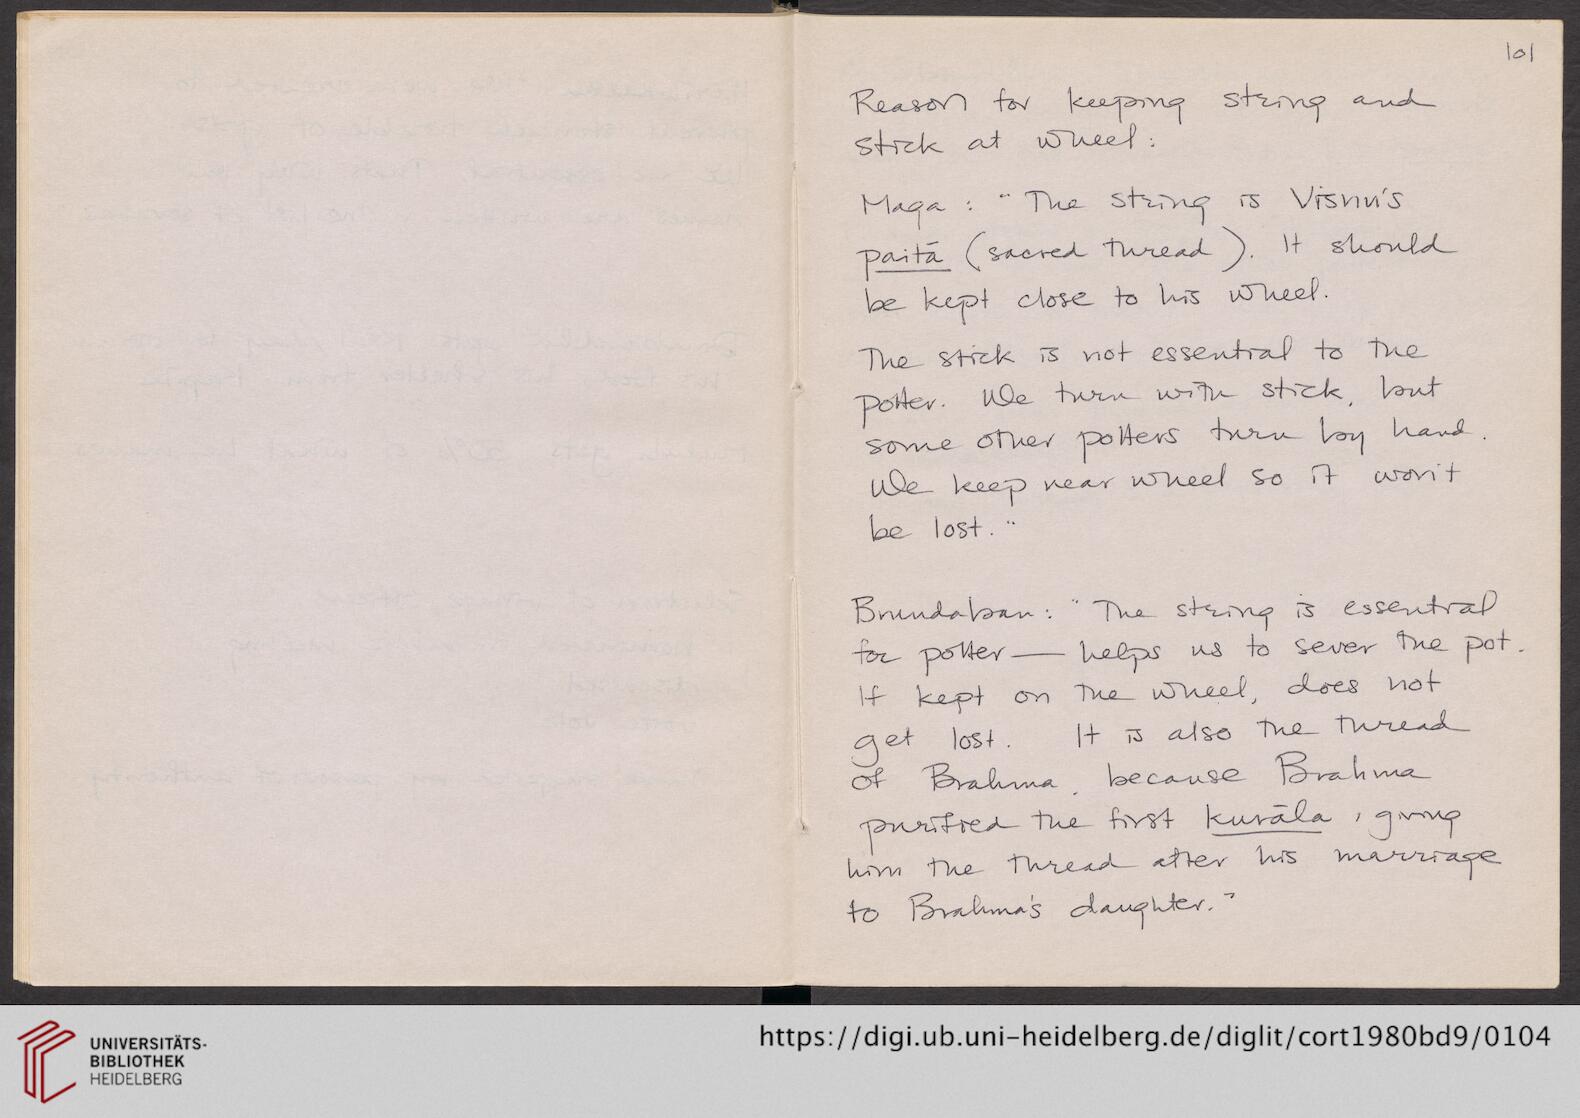 101
Reason for keeping string and
stick at wheel:
Maga: "The string is Visnu's
paitā (sacred thread). It should
be kept close to his wheel.
The stick is not essential to the
potter. We turn with stick, but
some other potters turn by hand.
We keep near wheel so it won't
be lost."
Brundaban: "The string is essential
for potter — helps us to sever the pot.
If kept on the wheel, does not
get lost. It is also the thread
of Brahma, because Brahma
purified the first kurāla, giving
him the thread after his marriage
to Brahma's daughter."
UNIVERSITÄTS-
BIBLIOTHEK
HEIDELBERG
https://digi.ub.uni-heidelberg.de/diglit/cort1980bd9/0104